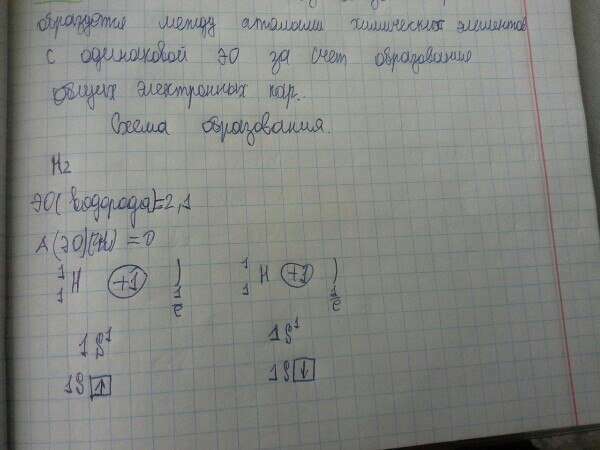 образуется между атомами химических элементов
с одинаковой ЭО за счет образование
общих электронных пар.
Схема образования.
H2
ЭО(водорода)=2,1
Δ(ЭО)(H) = 0
1 1 H +1 ) 1e 1 1 H +1 ) 1e
1S¹ 1S¹
1S ↑ 1S ↓